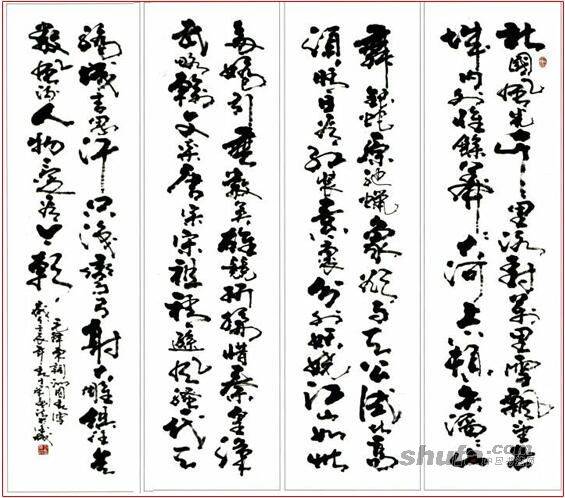 北國風光千里冰封萬里雪飄望長
城内外惟餘莽莽大河上下頓失滔滔
舞銀蛇原馳蠟象欲与天公試比高
須晴日看紅裝素裹分外妖嬈江山如此
多嬌引無數英雄競折腰惜秦皇漢
武略輸文采唐宗宋祖稍遜風騷一代天
驕成吉思汗只識彎弓射大雕俱往矣
數風流人物還看今朝
毛澤東詞沁園春雪
歲壬辰年春
shufa.com